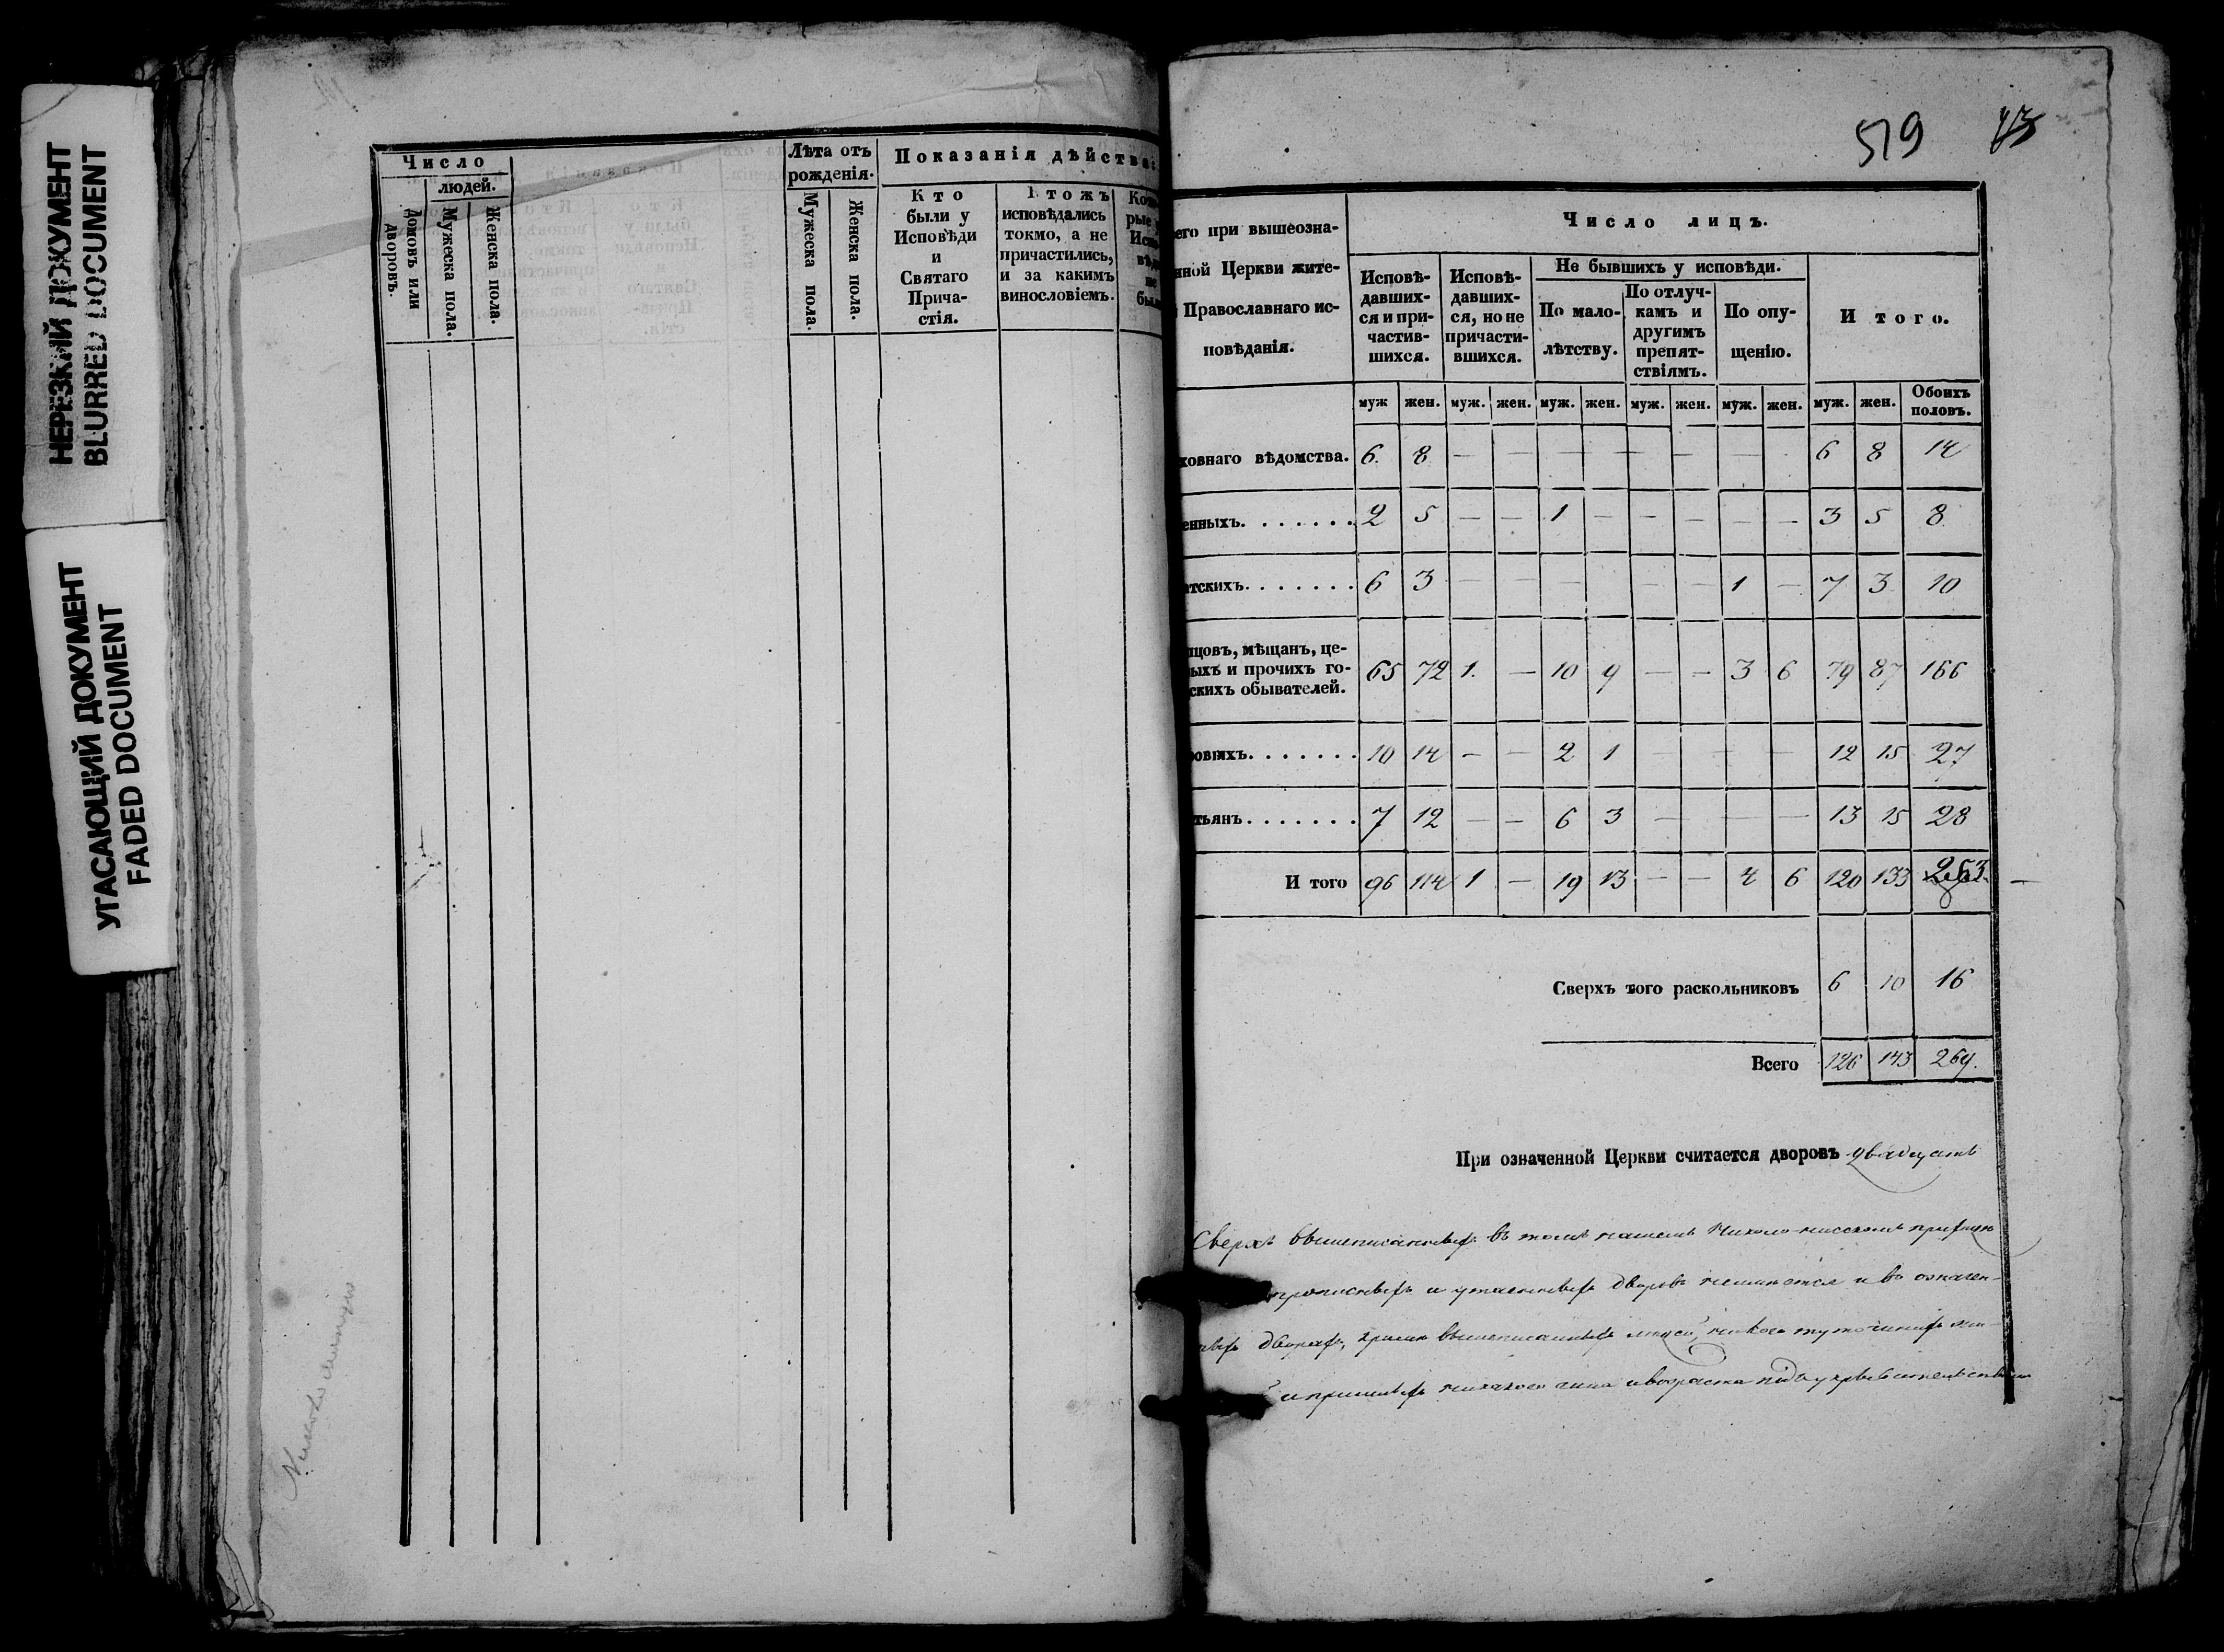 НЕРЕЗКИЙ ДОКУМЕНТ
BLURRED DOCUMENT
УГАСАЮЩИЙ ДОКУМЕНТ
FADED DOCUMENT
Число
людей.
Домовъ или
дворовъ.
Мужеска пола.
Женска пола.
Лѣта отъ
рожденія.
Мужеска пола.
Женска пола.
Показанія дѣйства
Кто
были у
Исповѣди
и
Святаго
Прича-
стія.
тожъ
исповѣдались
токмо, а не
причастились,
и за какимъ
винословіемъ.
рые
519
его при вышеозна-
нной Церкви жите-
Православнаго ис-
повѣданія.
Число лицъ.
Исповѣ-
давших-
ся и при-
частив-
шихся.
Исповѣ-
давших-
ся, но не
причасти-
вшихся.
Не бывшихъ у исповѣди.
По мало-
лѣтству.
По отлуч-
камъ и
другимъ
препят-
ствіямъ.
По опу-
щенію.
Итого.
муж жен. муж. жен. муж. жен. муж. жен. муж. жен. муж. жен. Обоихъ
половъ.
ховнаго вѣдомства. 6. 8 — — — — — — — - 6 8 14
енныхъ. . . . . . . 2 5 — — 1 — — — — — 3 5 8
тскихъ. . . . . . . 6 3 — — — — — 1 — 7 3 10
цовъ, мѣщанъ, це-
ыхъ и прочихъ го-
скихъ обывателей. 65 72 1. — 10 9 — — 3 6 79 87 166
овыхъ. . . . . . . 10 14 — — 2 1 — — — 12 15 27
тьянъ. . . . . . . 7 12 — — 6 3 — — — 13 15 28
И того 96 114 1 — 19 13 — — 4 6 120 133 253 —
Сверхъ того раскольниковъ 6 10 16
Всего 126 143 269.
При означенной Церкви считается дворовъ двадцать
Сверхъ вышеписанныхъ въ томъ нашемъ приходѣ
прописныхъ и утаенныхъ дворовъ неимѣется и въ означен-
ныхъ дворахъ, кромѣ вышеписанныхъ людей,
и пришлыхъ никакого чина и возраста